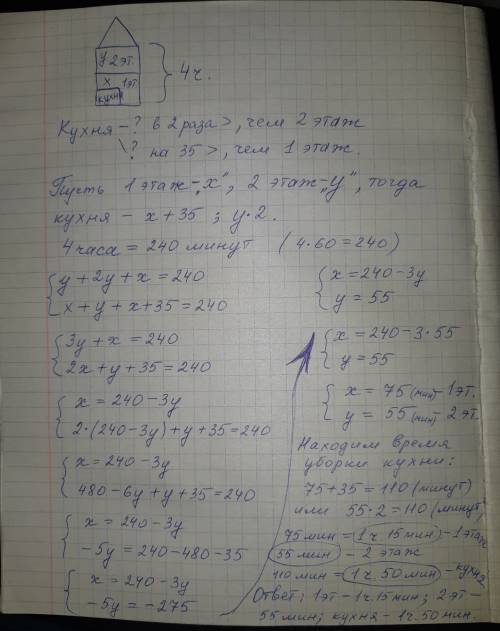 у 2 эт.
х 1 эт.
кухня
4 ч.
Кухня - ? в 2 раза >, чем 2 этаж
? на 35 >, чем 1 этаж.
Пусть 1 этаж - „х", 2 этаж - „у", тогда
кухня - х + 35 ; у · 2.
4 часа = 240 минут (4 · 60 = 240)
у + 2у + х = 240
х + у + х + 35 = 240
3у + х = 240
2х + у + 35 = 240
х = 240 - 3у
2 · (240 - 3у) + у + 35 = 240
х = 240 - 3у
480 - 6у + у + 35 = 240
х = 240 - 3у
-5у = 240 - 480 - 35
х = 240 - 3у
-5у = -275
х = 240 - 3у
у = 55
х = 240 - 3 · 55
у = 55
х = 75 (мин) - 1 эт.
у = 55 (мин) - 2 эт.
Находим время
уборки кухни:
75 + 35 = 110 (минут)
или 55 · 2 = 110 (минут)
75 мин = 1 ч 15 мин - 1 этаж
55 мин - 2 этаж
110 мин = 1 ч. 50 мин - кухня
Ответ: 1 эт - 1 ч. 15 мин; 2 эт -
55 мин; кухня - 1 ч. 50 мин.